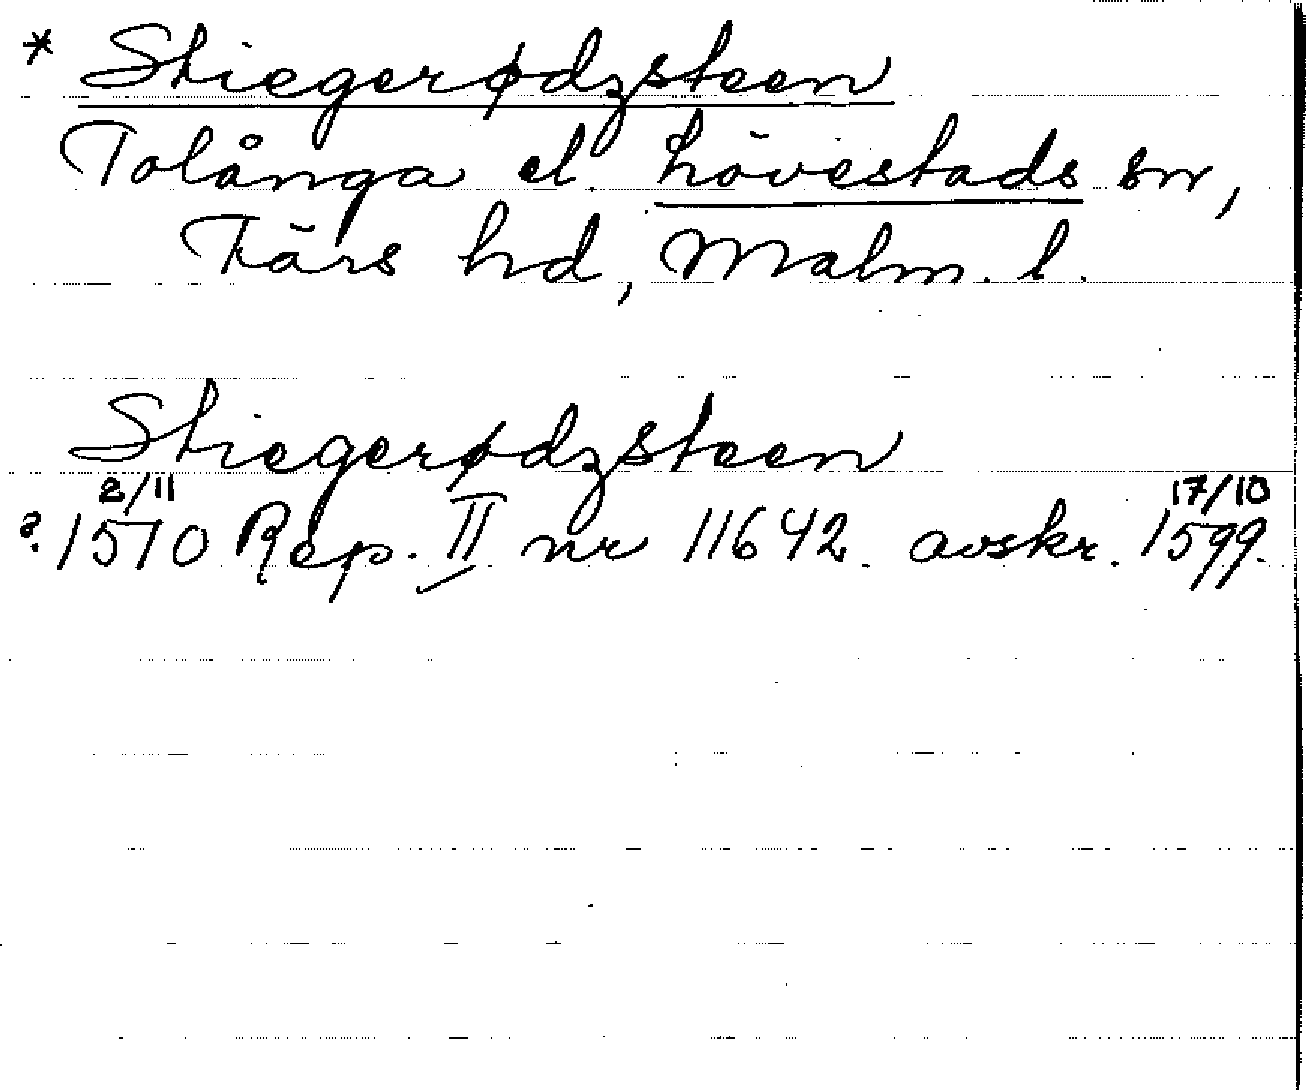 * Stiegerødzsteen
Tolånga el. Lövestads sn,
Färs hd, Malm. l.
Stiegerødzsteen
2/11 17/10
?1570 Rep. II nr 11642. avskr. 1599.